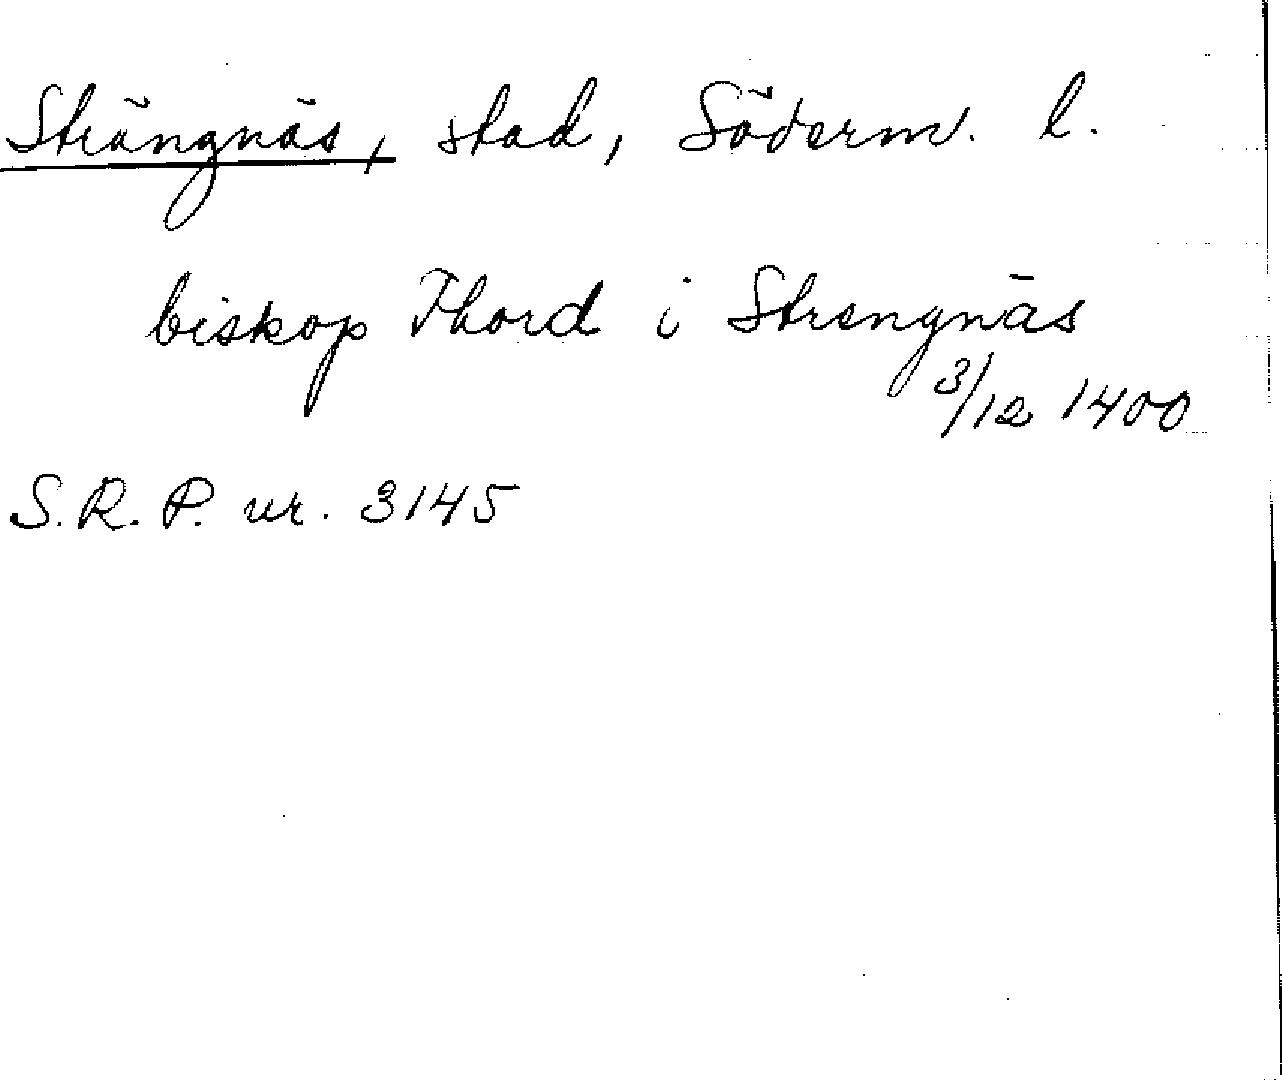 Strängnäs, stad, Söderm. l.
biskop Thord i Strengnäs
3/12 1400
S.R.P. nr. 3145